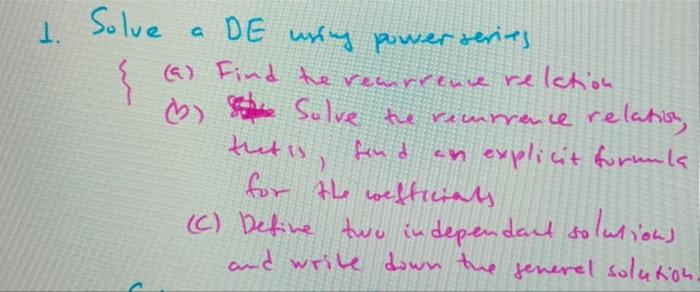 1. Solve a DE using power series
(a) Find the recurrence relation
(b) Solve the recurrence relation,
that is, find an explicit formula
for the coefficients
(c) Define two independant solutions
and write down the general solution.